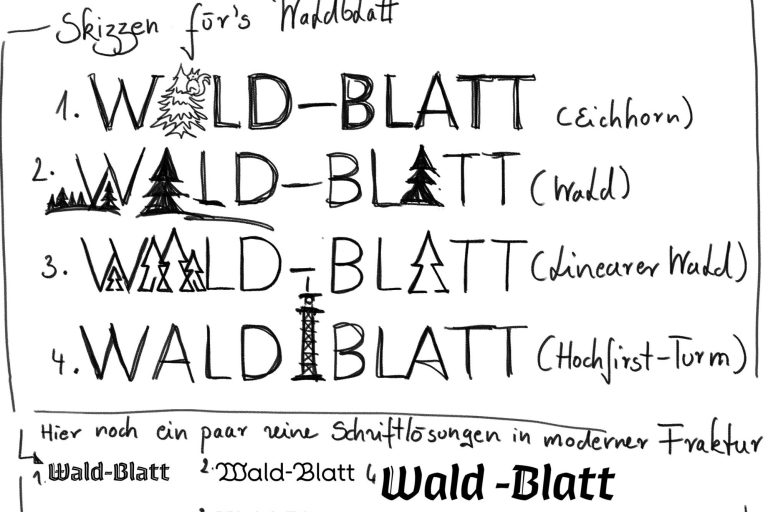 Skizzen für's Waldblatt
1. WALD-BLATT (Eichhorn)
2. WALD-BLATT (Wald)
3. WALD-BLATT (Linearer Wald)
4. WALD BLATT (Hochfirst-Turm)
Hier noch ein paar reine Schriftlösungen in moderner Fraktur
1. Wald-Blatt 2. Wald-Blatt 4 Wald-Blatt